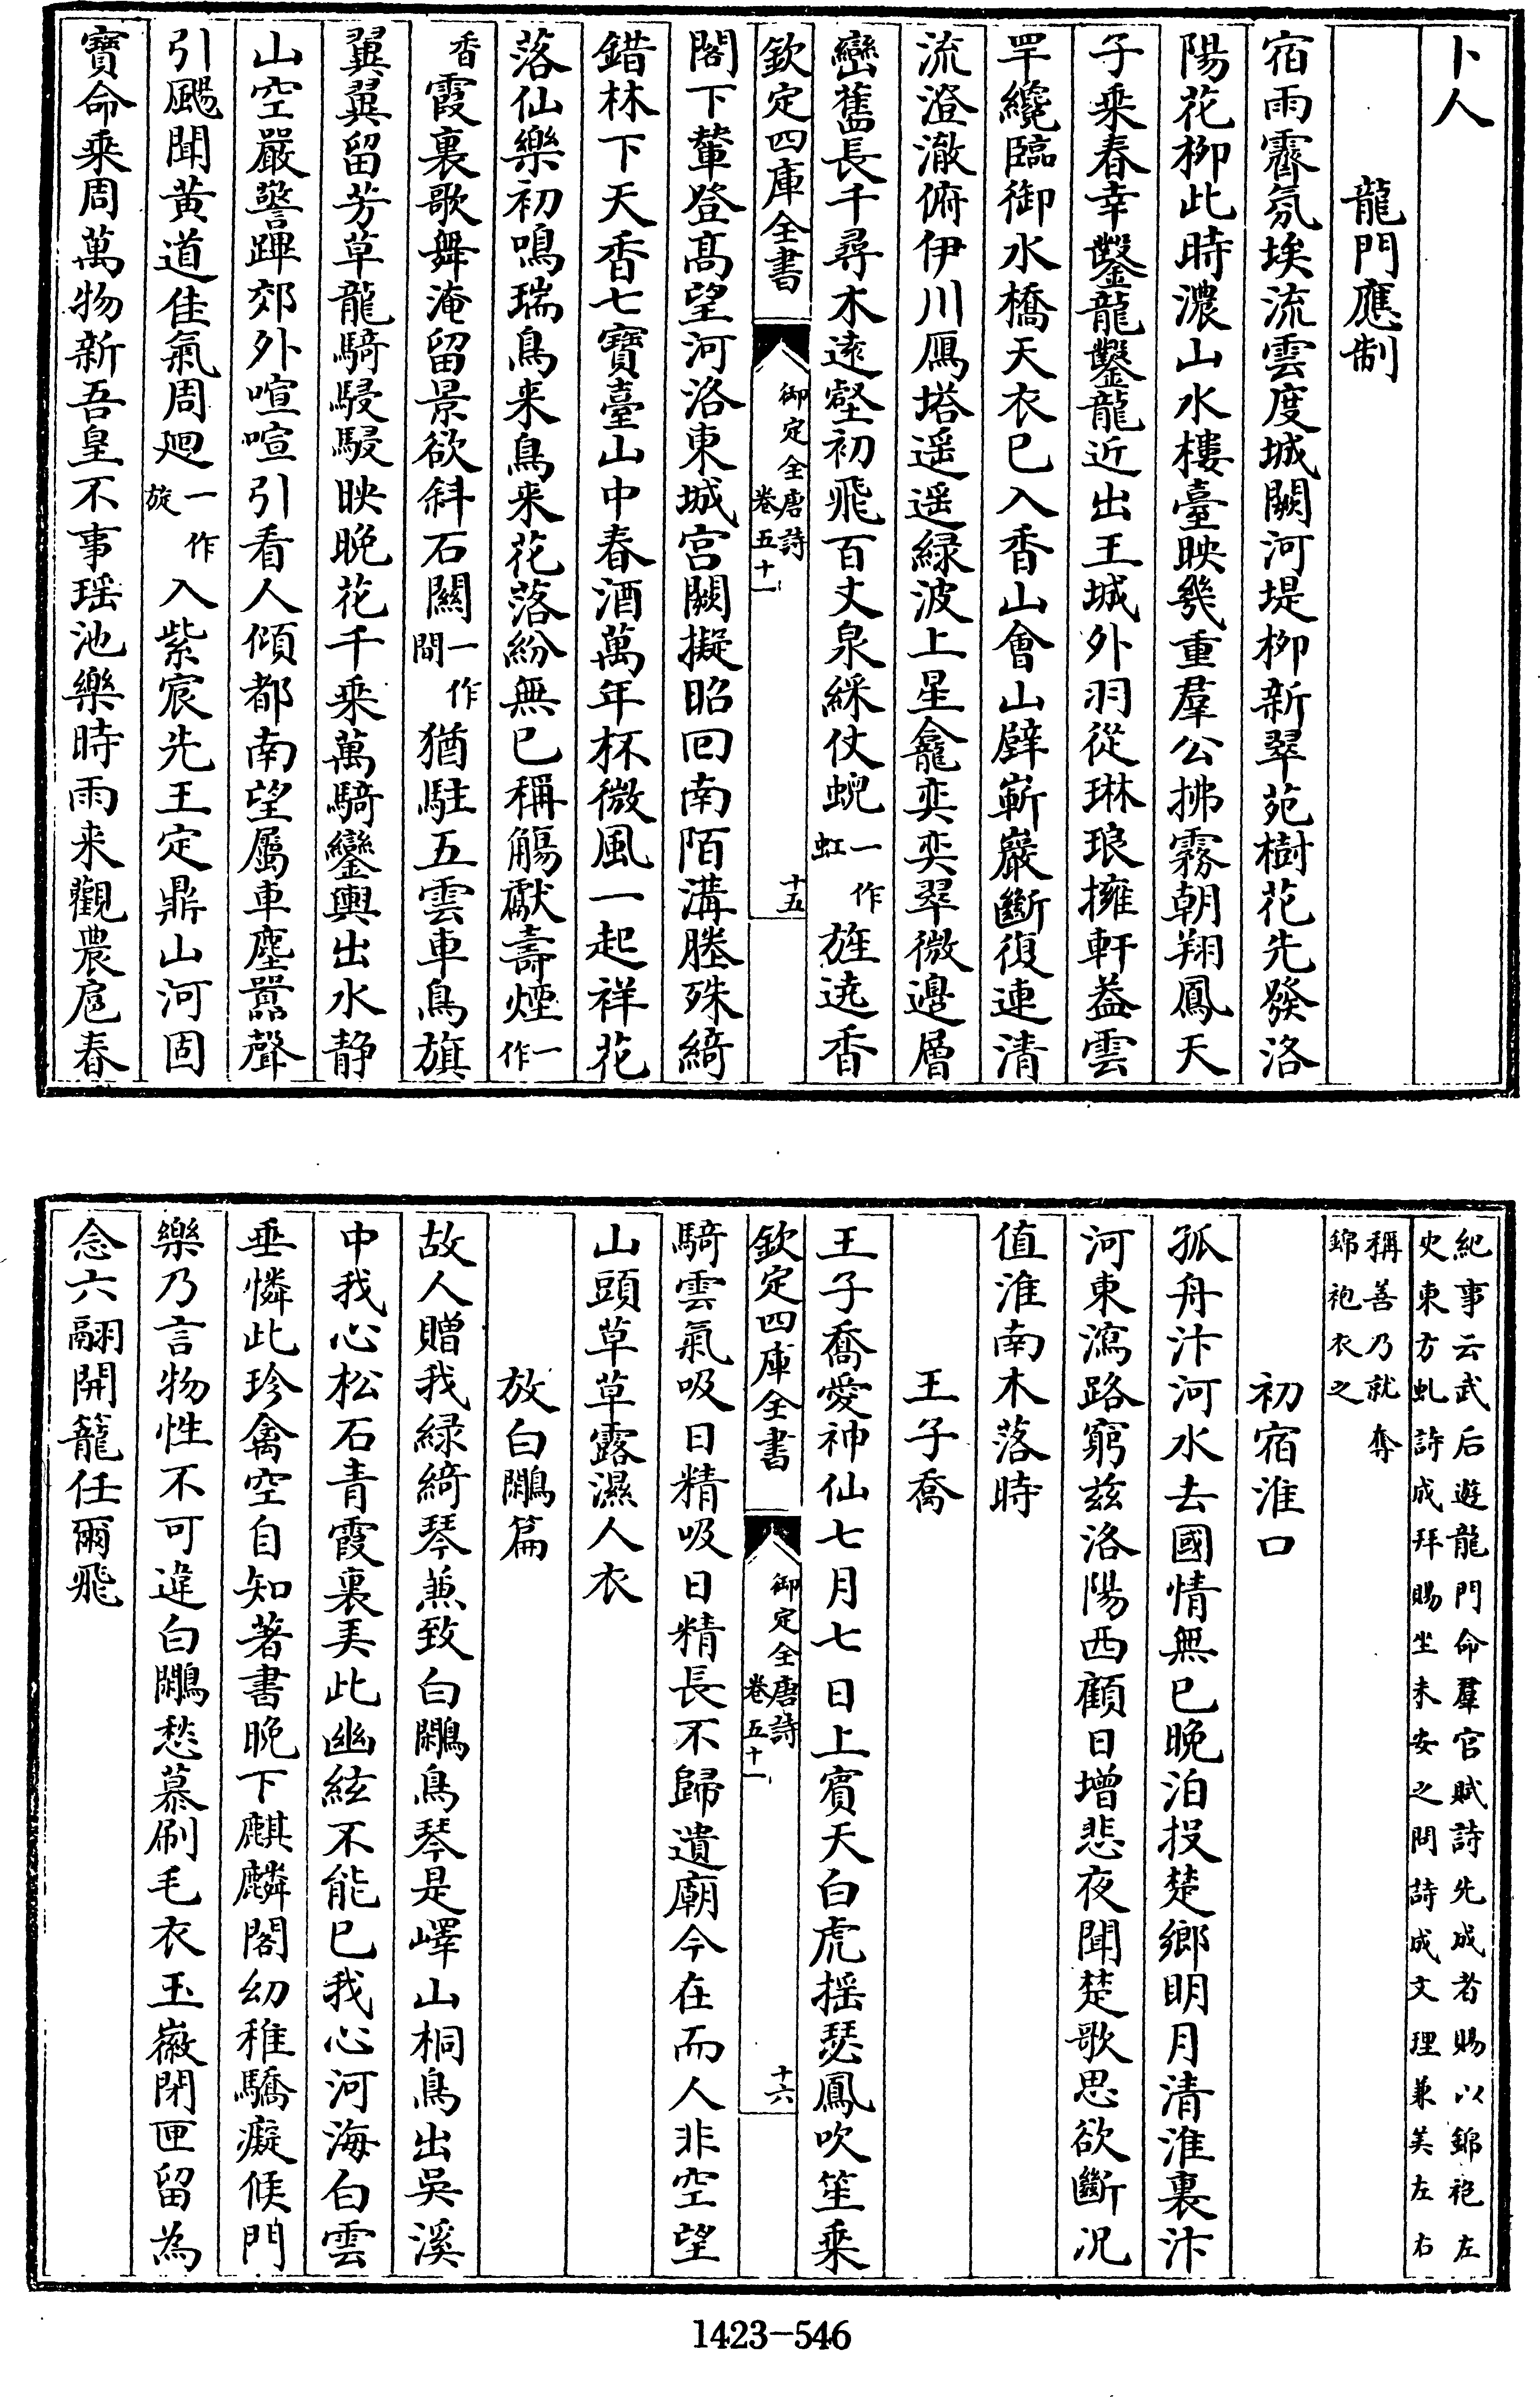 卜人
龍門應制
宿雨霽氛埃流雲度城闕河堤柳新翠苑樹花先發洛
陽花柳此時濃山水樓臺映幾重羣公拂霧朝翔鳳天
子乘春幸鑿龍鑿龍近出王城外羽從琳琅擁軒葢雲
罕纔臨御水橋天衣已入香山會山壁嶄巖斷復連清
流澄澈俯伊川鴈塔遥遥緑波上星龕奕奕翠微邊層
巒舊長千尋木逺壑初飛百丈泉綵仗蜺一作虹旌遶香
欽定四庫全書
御定全唐詩
卷五十一
十五
閣下輦登髙望河洛東城宫闕擬昭回南陌溝塍殊綺
錯林下天香七寶臺山中春酒萬年杯微風一起祥花
落仙樂初鳴瑞鳥来鳥来花落紛無已稱觴獻壽煙一作
香霞裏歌舞淹留景欲斜石闗一作間猶駐五雲車鳥旗
翼翼留芳草龍騎駸駸映晚花千乘萬騎鑾輿出水静
山空嚴警蹕郊外喧喧引看人傾都南望屬車塵囂聲
引颺聞黄道佳氣周廻一作旋入紫宸先王定鼎山河固
寶命乘周萬物新吾皇不事瑶池樂時雨来觀農扈春
紀事云武后遊龍門命羣官賦詩先成者賜以錦袍左
史東方虬詩成拜賜坐未安之問詩成文理兼美左右
稱善乃就奪
錦袍衣之
初宿淮口
孤舟汴河水去國情無已晚泊投楚鄉明月清淮裏汴
河東瀉路窮兹洛陽西顧日增悲夜聞楚歌思欲斷况
值淮南木落時
王子喬
王子喬愛神仙七月七日上賓天白虎摇瑟鳳吹笙乘
欽定四庫全書
御定全唐詩
卷五十一
十六
騎雲氣吸日精吸日精長不歸遺廟今在而人非空望
山頭草草露濕人衣
放白鷴篇
故人贈我緑綺琴兼致白鷴鳥琴是嶧山桐鳥出吳溪
中我心松石青霞裏美此幽絃不能已我心河海白雲
垂憐此珍禽空自知著書晚下麒麟閣幼稚驕癡候門
樂乃言物性不可違白鷴愁慕刷毛衣玉徽閉匣留為
念六翮開籠任爾飛
1423-546